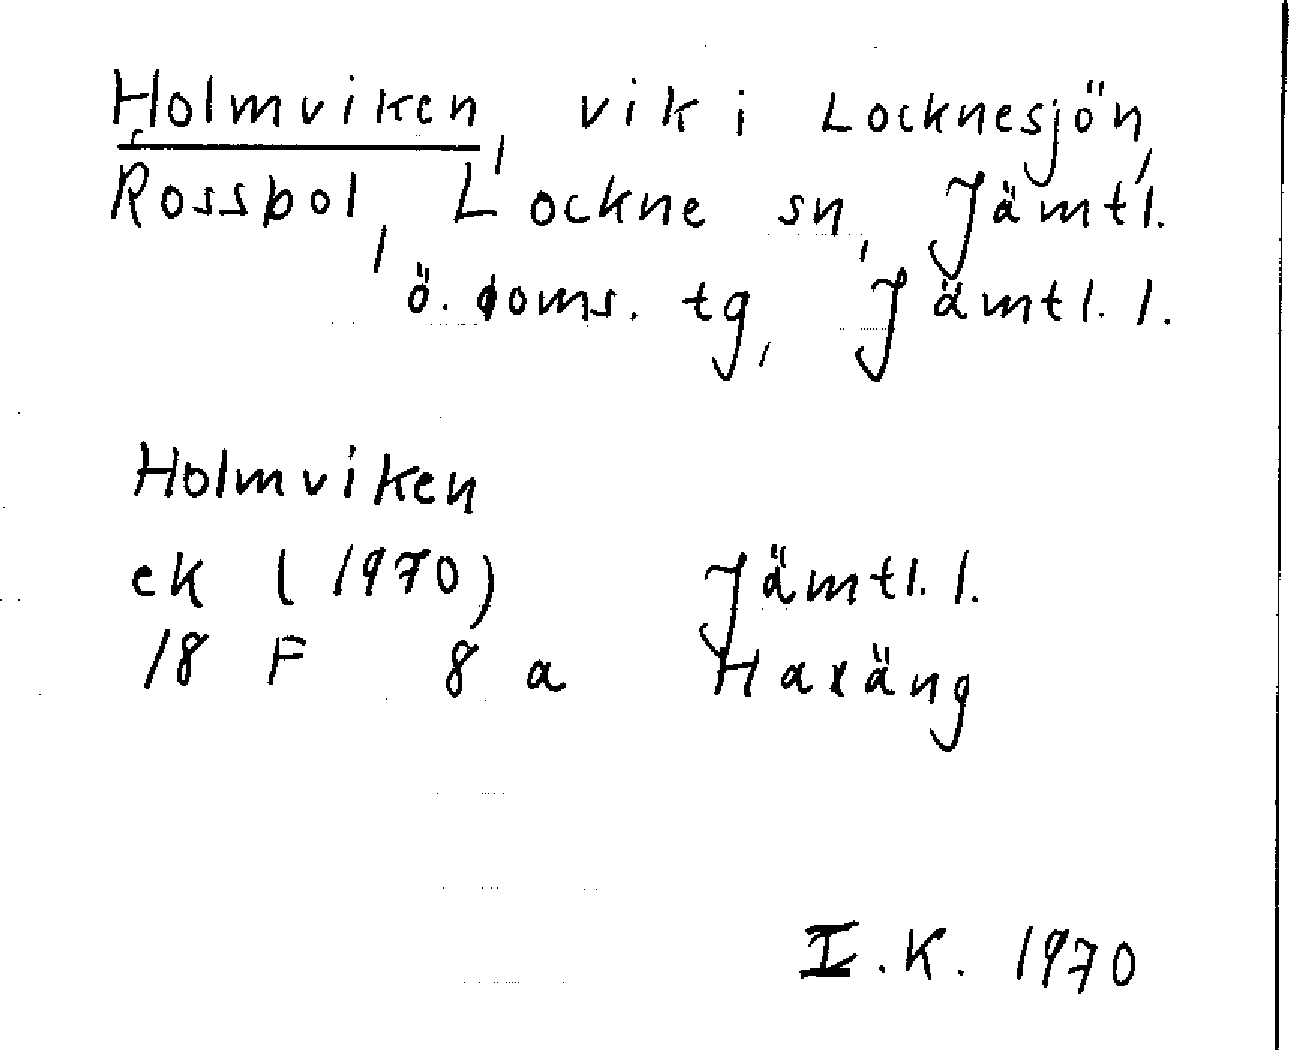 Holmviken, vik i Locknesjön,
Rossbol, Lockne sn, Jämtl.
ö. doms. tg, Jämtl. l.
Holmviken
ek (1970) Jämtl. l.
18 F 8 a Haxäng
I.K. 1970